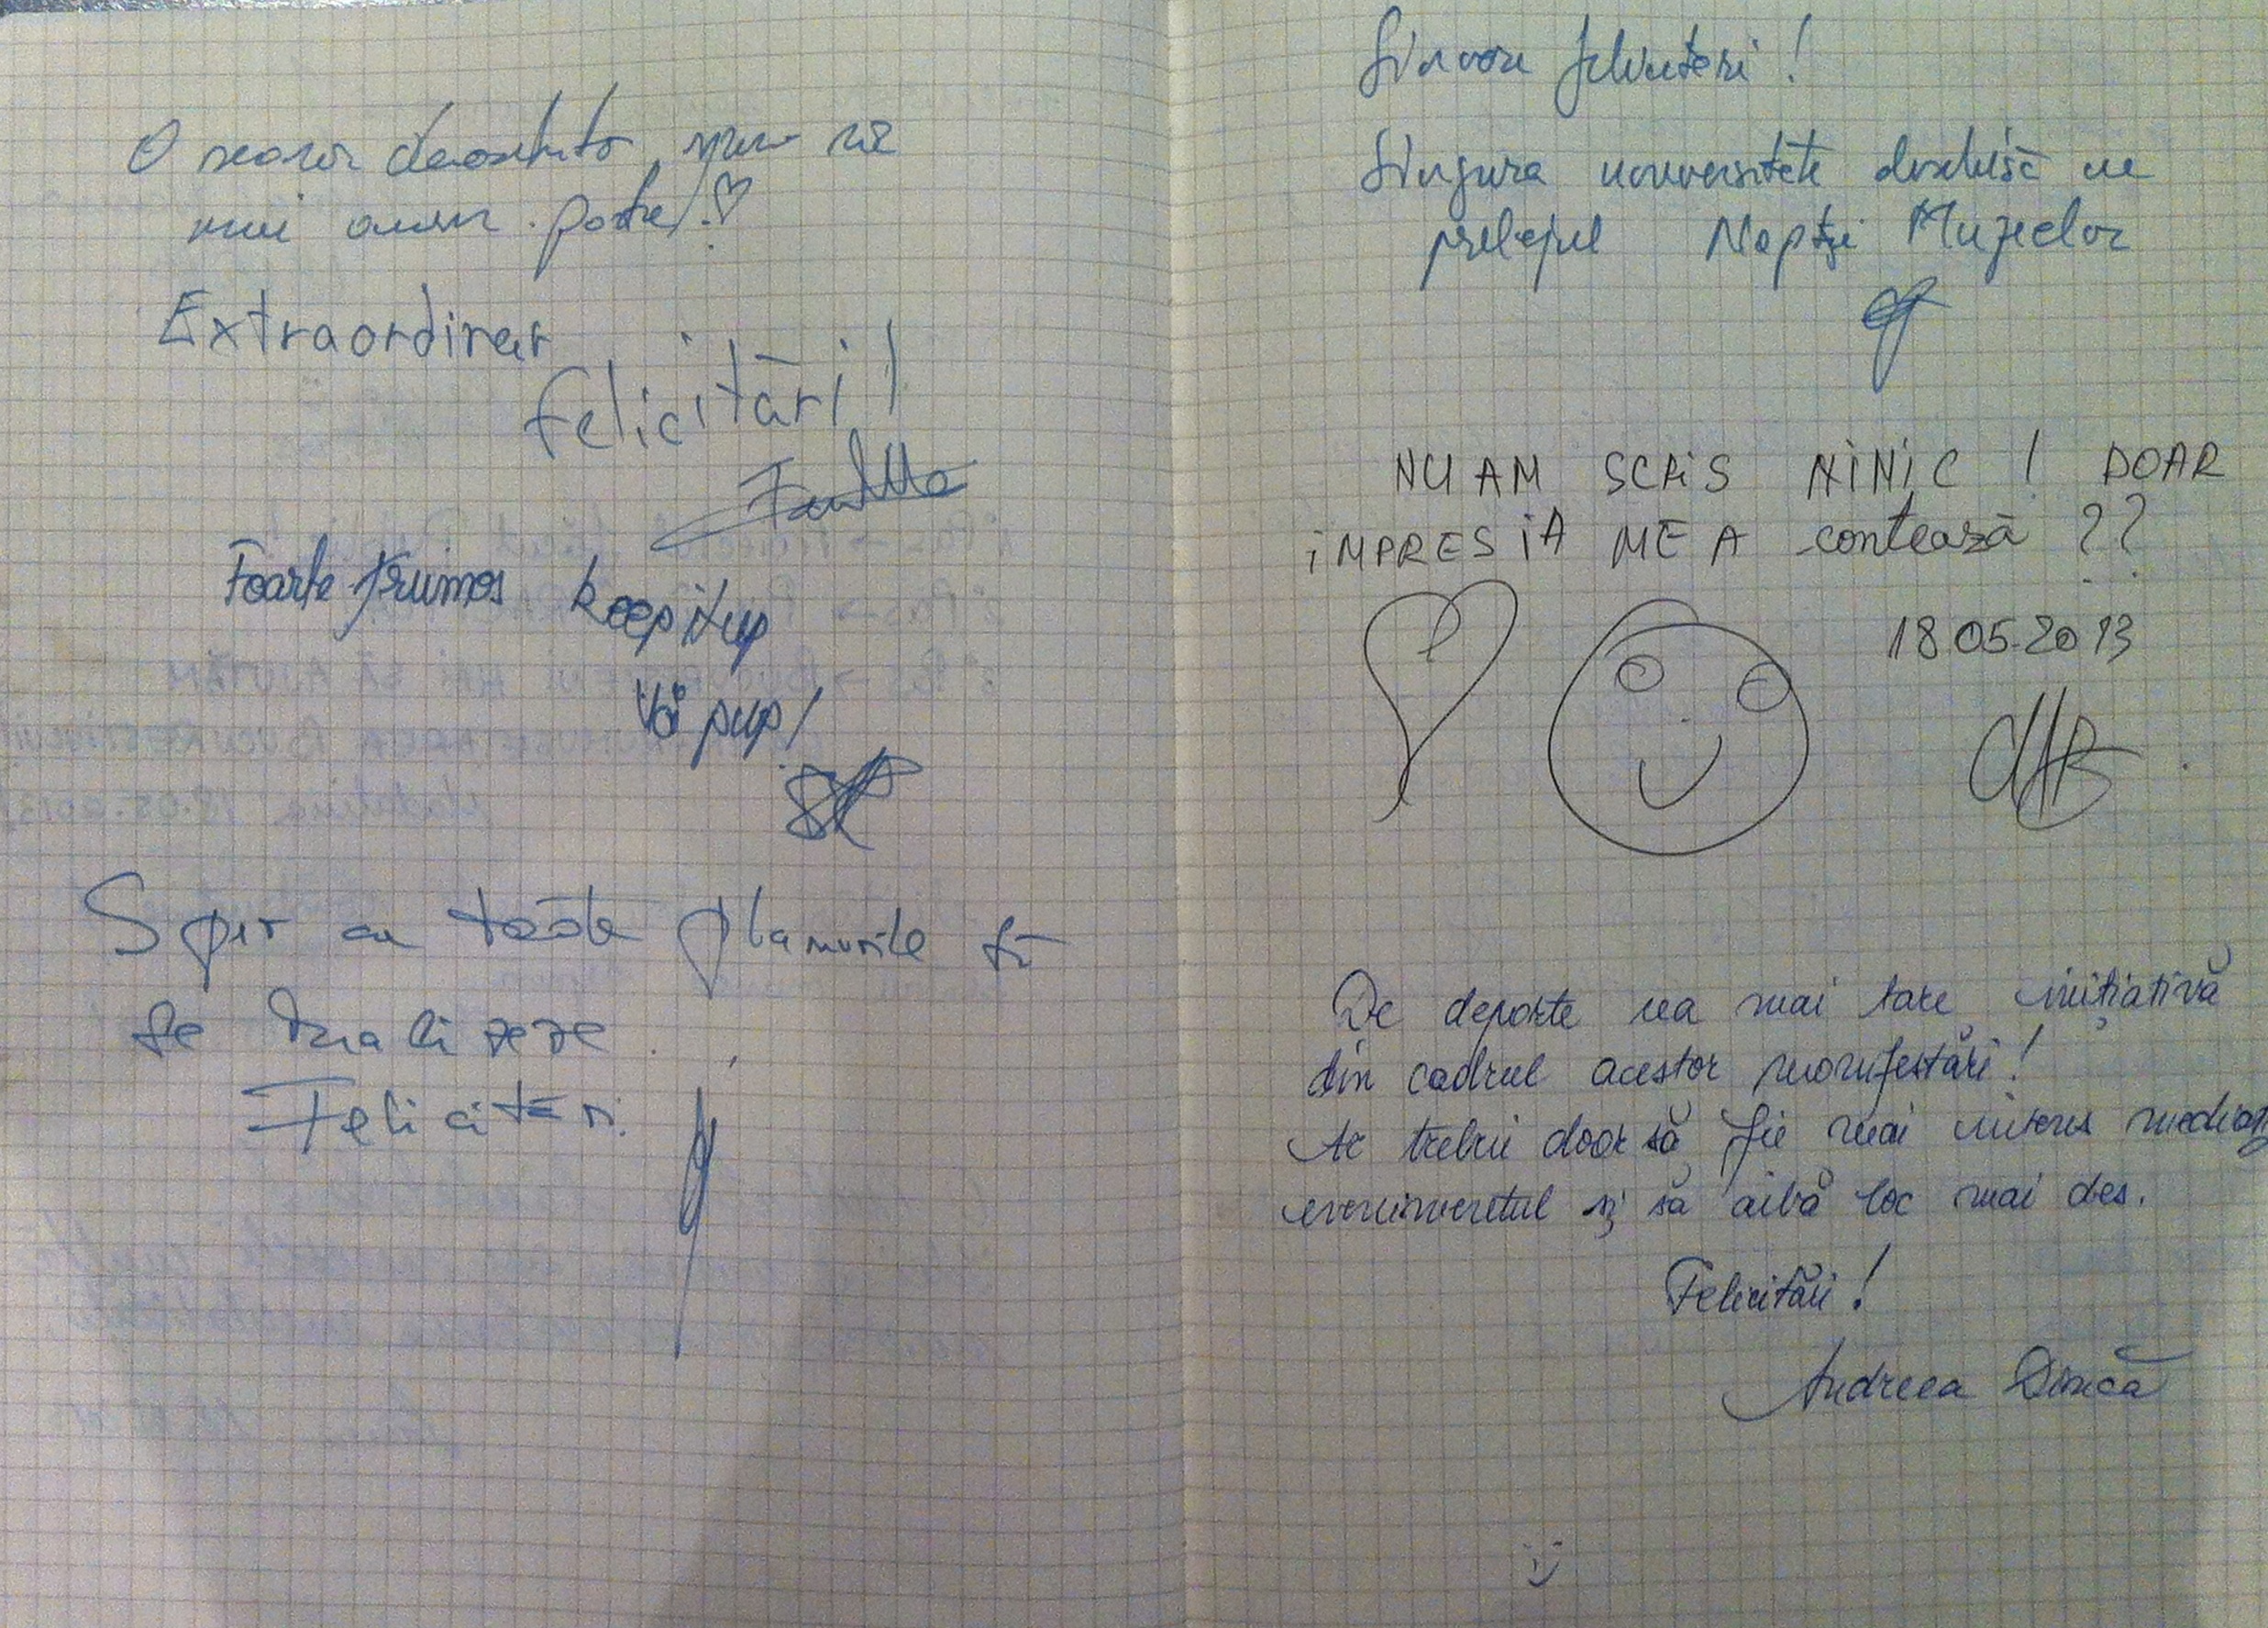 O seară deosebită, sper să
mai avem parte!
Extraordinar
felicitări!
Foarte frumos keep it up
Vă pup!
Sper ca toate planurile să
se realizeze
Felicitări
Sincere felicitări!
Singura universitate deschisă cu
prilejul Nopții Muzeelor
NU AM SCRIS NIMIC ! DOAR
IMPRESIA MEA contează ??
18.05.2013
De departe cea mai tare inițiativă
din cadrul acestor manifestări!
Ar trebui doar să fie mai intens mediat
evenimentul și să aibă loc mai des.
Felicitări!
Andreea
:)